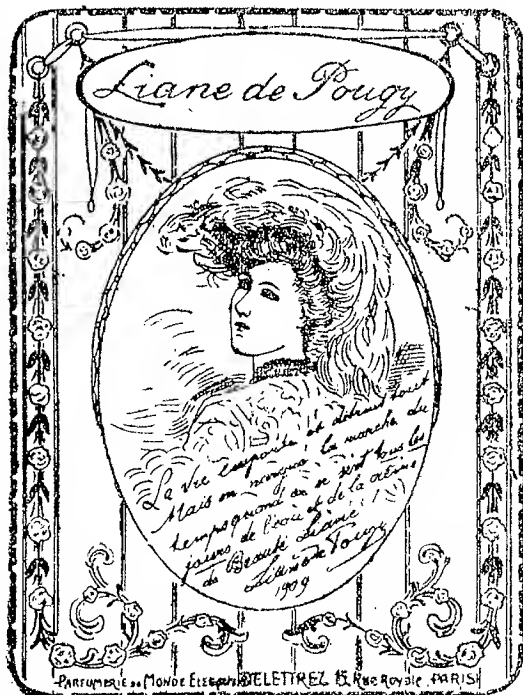 Liane de Pougy
La vie emporte et détruit tout
Mais on nargue la marche du
temps quand on se sert tous les
jours de l'eau et de la crème
de Beauté Liane
Liane de Pougy
1909
PARFUMERIE DU MONDE ELEGANT DELETTREZ 15, Rue Royale, PARIS